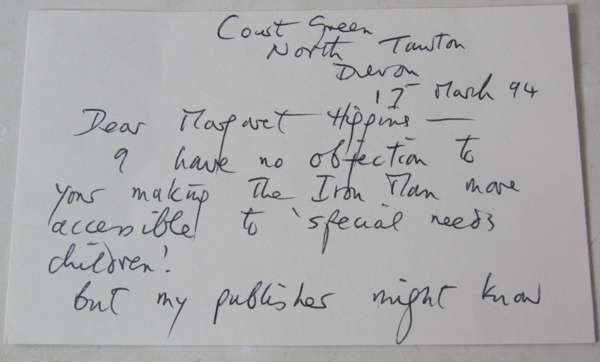 Court Green
North Tawton
Devon
17 March 94
Dear Margaret Higgins —
I have no objection to
your making The Iron Man more
accessible to 'special needs
children'.
but my publisher might know